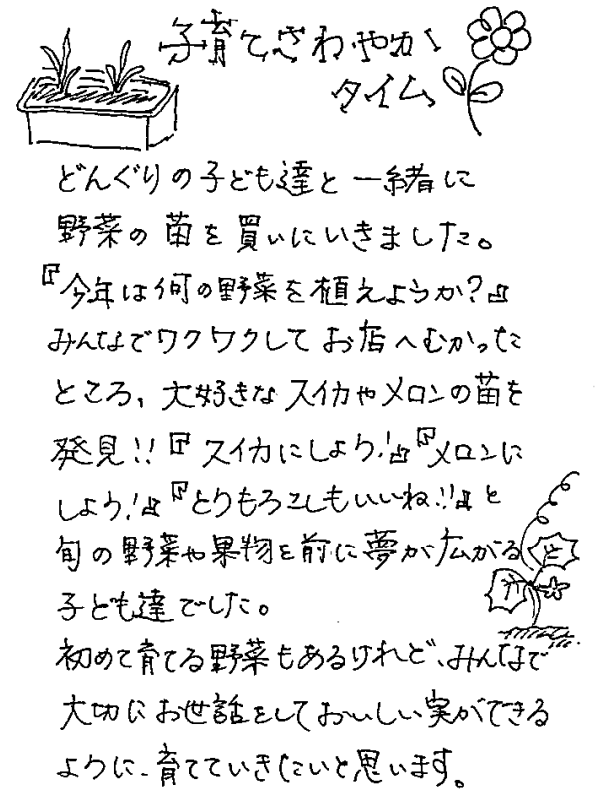 子育てさわやか
タイム
どんぐりの子ども達と一緒に
野菜の苗を買いにいきました。
『今年は何の野菜を植えようか?』
みんなでワクワクしてお店へむかった
ところ、大好きなスイカやメロンの苗を
発見!!『スイカにしよう!』『メロンに
しよう!』『とりもろこしもいいね!!』と
旬の野菜や果物を前に夢が広がる
子ども達でした。
初めて育てる野菜もあるけれど、みんなで
大切にお世話をしておいしい実ができる
ように、育てていきたいと思います。